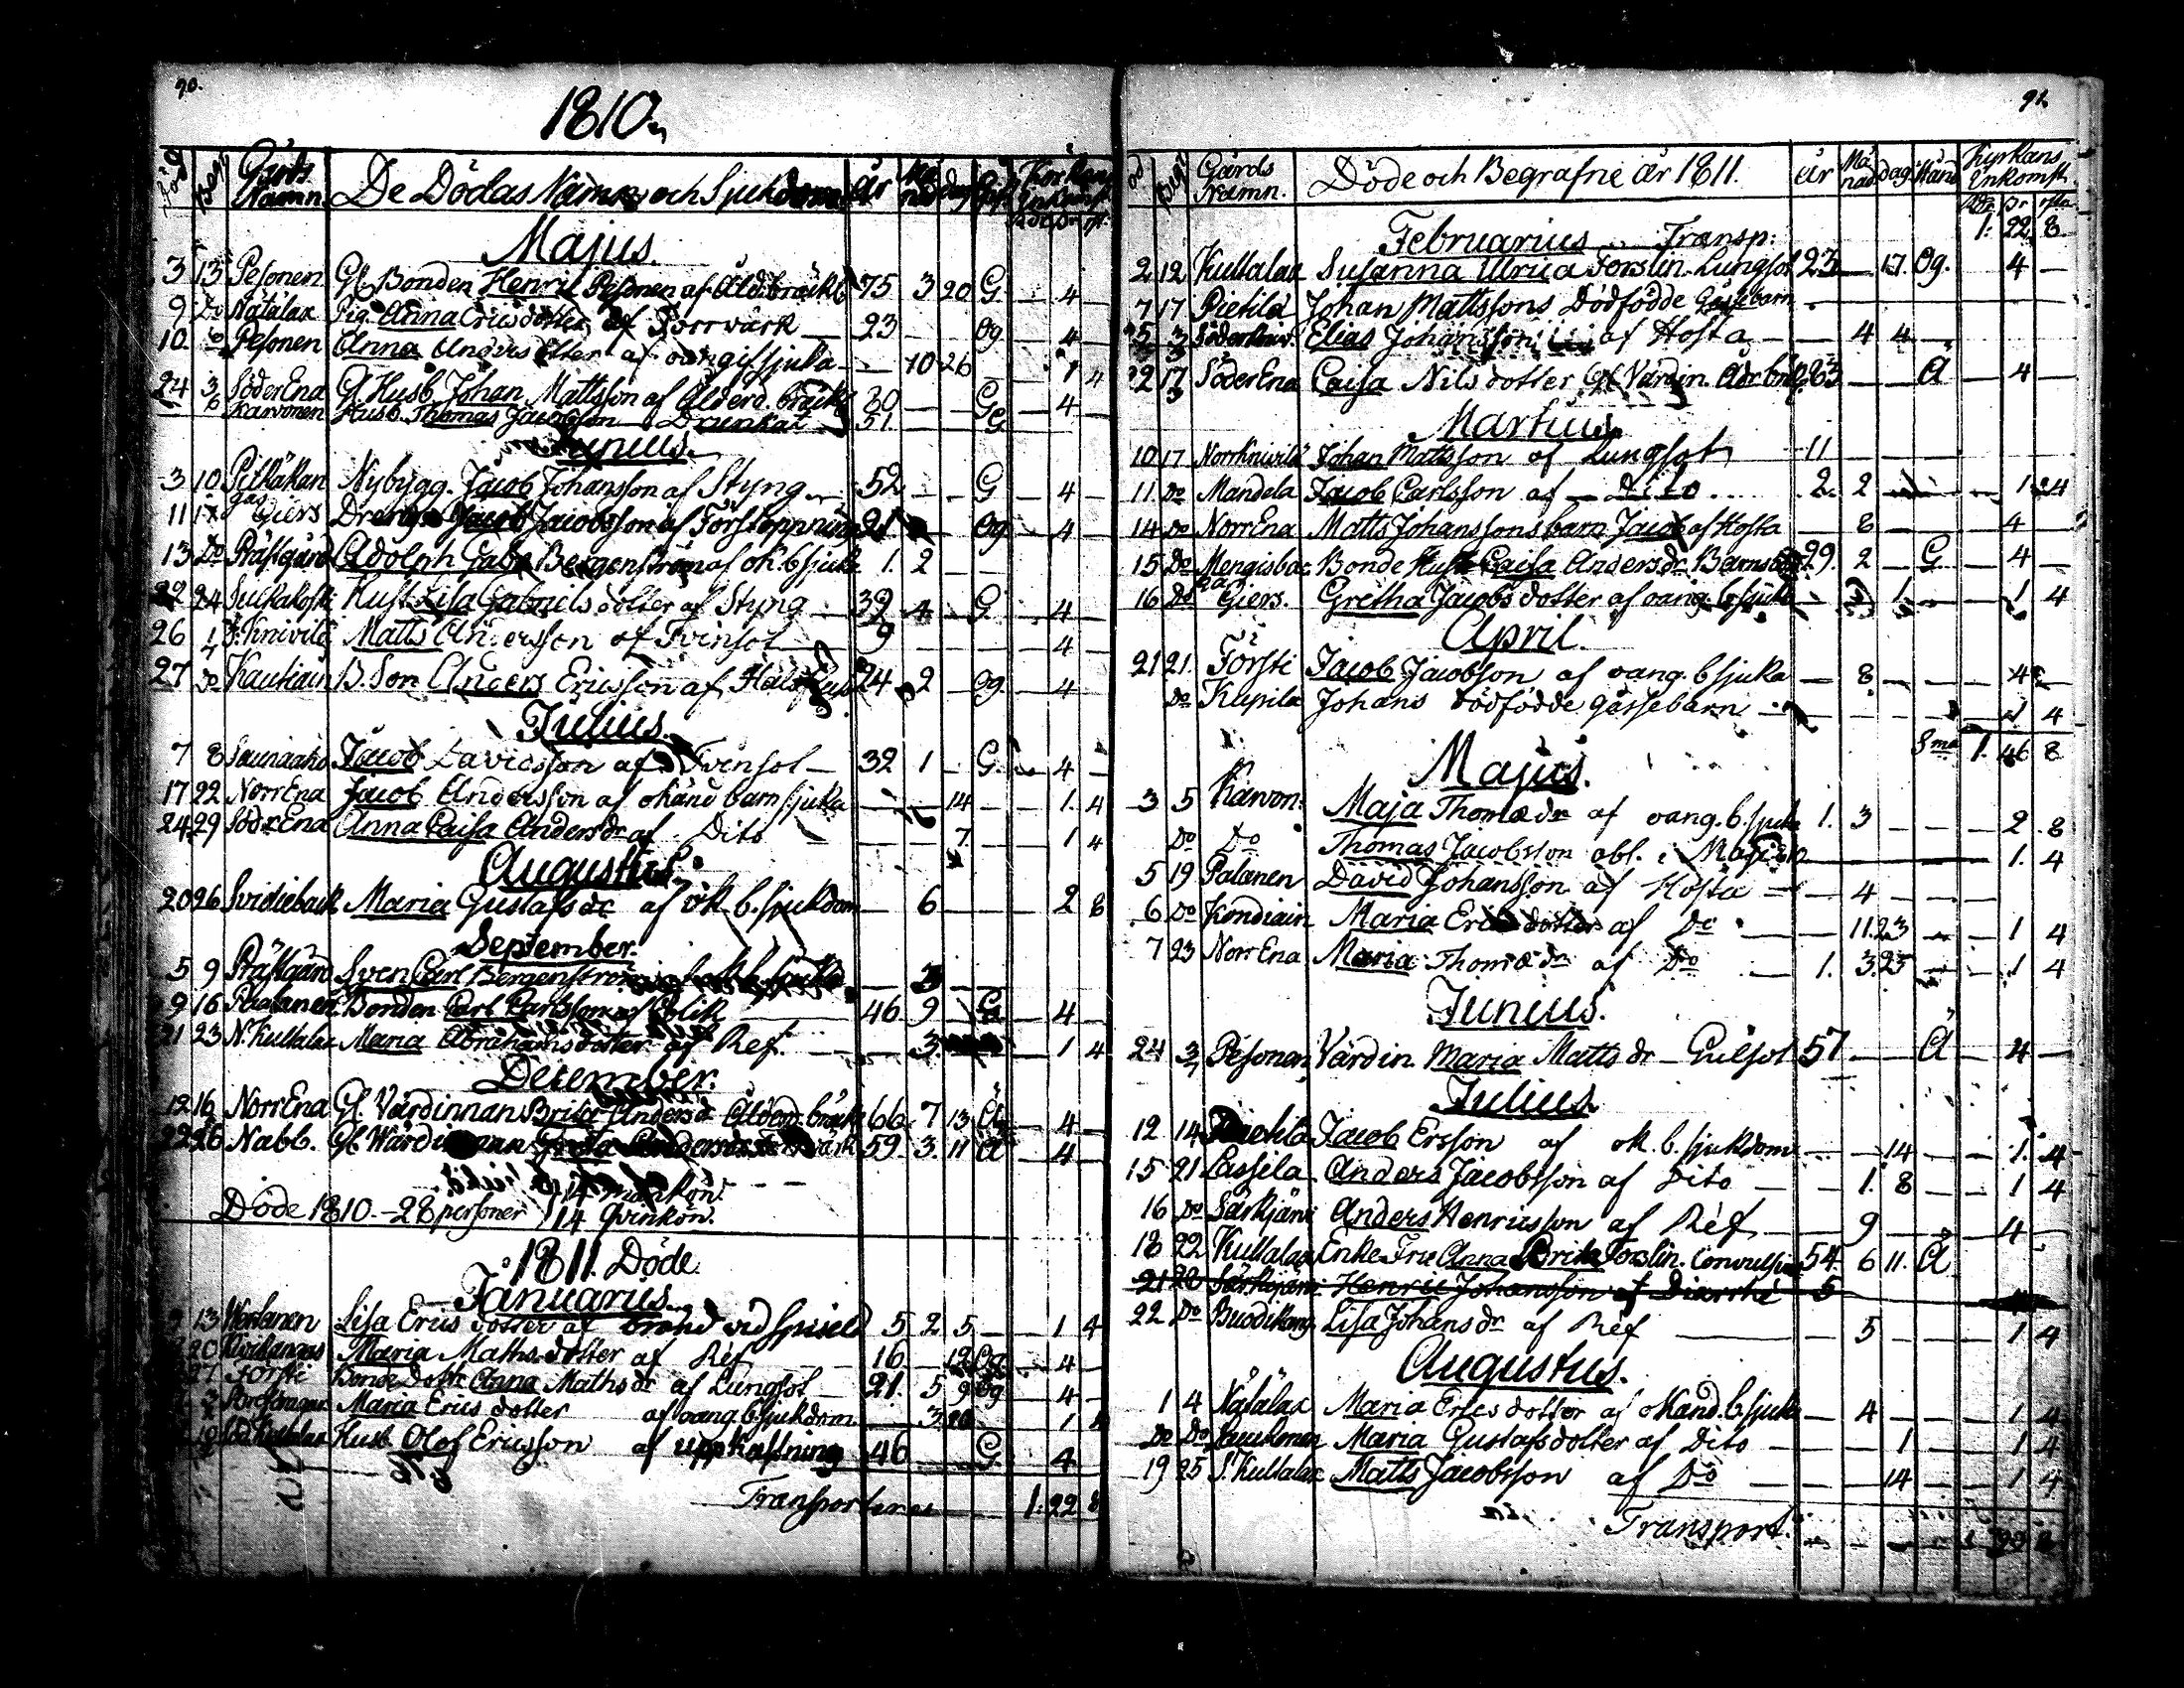 90.
1810.
Död Begr. Gårds Namn. De Dödas Namn och Sjukdom År Må nad dag Kyrkans Inkomst
Majus.
3 13 Pesonen Gl. Bonden Henric Pesonen af Åld. bräckl. 75 3 20 G 4 —
9 Do Nätälax Pig. Anna Ericsdotter af Torrvärk — 23 Og 4
10. Pesonen Anna Anders dotter af oang. sjuka — 10 26 1 4
24 3 SöderEna Gl. Husb. Johan Mattsson af Ålderd. bräckl. 80 — G 4 —
Karvonen Husb. Thomas Jacobsson Drunkat 51 — G
Junius.
3 10 Pitkäkangas Nybygg. Jacob Johansson af Styng — 52 — G 4 —
11 17 Giers Dräng Jacob Jacobsson af Förstoppning 21 Og 4 —
13 Do Prästgård Adolph Gabr. Bergenström af ok. b. sjuka 1. 2 — —
22 24 Sulkakoski Hust. Lisa Gabriels dotter af Styng — 39 4 G 4 —
26 1 S. Knivilä Matts Andersson af Tvinsot — 9 — — 4
27 Do Kautiain B. Son Anders Ericsson af 24 2 Og 4
Julius.
7 8 Saunaaho Jacob Davidsson af Tvinsot — 32 1 — G. 4 —
17 22 NorrEna Jacob Andersson af okänd barnsjuka — — 14 — 1. 4
24 29 SödrEna Anna Caisa Anders dr af Dito — — 7 — 1 4
Augustus.
20 26 Svidieback Maria Gustafs dr af ok. b. sjukdom — 6 — — 2 8
September.
5 9 Prästgård Sven Carl Bergenström
9 16 Paalanen Bonden Carl Carlsson af Colik — 46 9 G 4 —
21 23 N. Kultalax Maria Abrahams dotter af Ref. — — 3. 1 4
December.
12 16 NorrEna Gl. Värdinnan Brita Anders dr Ålderd. bräckl. 66. 7 13 Ä 4 —
22 26 Nabb. Gl. Wärdinnan Greta 59. 3. 11 Ä 4
Döde 1810. — 28 personer 14 mankön.
14 qvinkön.
1811. Döde.
Januarius.
13 Lisa Erics dotter af brand vid spiseld 5 2 5 — 1 4
20 Maria Maths dotter af Ref — 16 — 12 Og 4 —
27 Försti Bonde Dottr. Anna Maths dr af Lungsot — 21. 5 9 Og 4 —
3 Maria Erics dotter af oang. b. sjukdom — 3 20 1 4
Husb. Olof Ericsson af uppkastning 46 — G 4
Transporteres — 1. 22 8
91.
Begr. Gårds Namn. Döde och Begrafne År 1811. År Må nad dag Stånd Kyrkans Inkomst.
Februarius — Transp: 1. 22. 8
2 12 Kultalax Susanna Ulrica Forslin. Lungsot 23 — 17 Og. 4 —
7 17 Pietilä Johan Mattssons Dödfödde Gåssebarn —
3 Söderkniv. Elias Johansson af Hosta — 4 4 —
22 17 SöderEna Caisa Nils dotter Gl. Värdin. 83 — Ä 4 —
Martius
10 17 Norrknivilä Johan Mattsson af Lungsot 11 —
11 Do Mandela Jacob Carlsson af — Dito 2. 2 — 1. 4
14 Do NorrEna Matts Johanssons barn Jacob af Hosta 8 — 4 —
15 Do Mengisbac Bonde Hust. Caisa Anders dr. Barnsbörd 29. 2 — G 4 —
16 Do Giers. Gretha Jacobs dotter af oang. b. sjuka — 1 — 1 4
April.
21 21. Försti Jacob Jacobsson af oang. b. sjuka — 8 — 4 —
Do Klepila Johans dödfödde gåssebarn — 4
Sma 1. 46 8
Majus.
3 5 Karvon. Maja Thomæ dr af oang. b. sjuka 1. 3 — — 2 8
Do Do Thomas Jacobsson obl. i Maji 1810 — 1. 4
5 19 Palanen David Johansson af Hosta — 4 —
6 Do Kondiain Maria Erics dotter af Do — 11 23 — 1 4
7 23 NorrEna Maria Thomæ dr af Do — 1. 3. 25 — 1 4
Junius.
24 3 Pesonen Värdin. Maria Matts dr — Gulsot 57 — Ä — 4 —
Julius
12 14 Jacob Ersson af ok. b. sjukdom — 14 — 1. 4
15 21 Cassila Anders Jacobsson af Dito — 1. 8 — 1 4
16 Do Särkjärvi Anders Henricsson af Ref — 9 — 4 —
18 22 Kultalax Enke Fru Anna Brita Forslin. Convulsion 54. 6 11. Ä
21 28 Särkjärvi Henric Johansson af Diarrhé 5
22 Do Buodikang Lisa Johans dr af Ref — 5 — 1 4
Augustus.
1 4 Nätälax Maria Erics dotter af okänd. b. sjuka — 4 — 1 4
Do Do Maria Gustafs dotter af Dito — 1 — 1 4
19 25 S. Kultalax Matts Jacobsson af Do — 14 — 1 4
Transport. 22 8